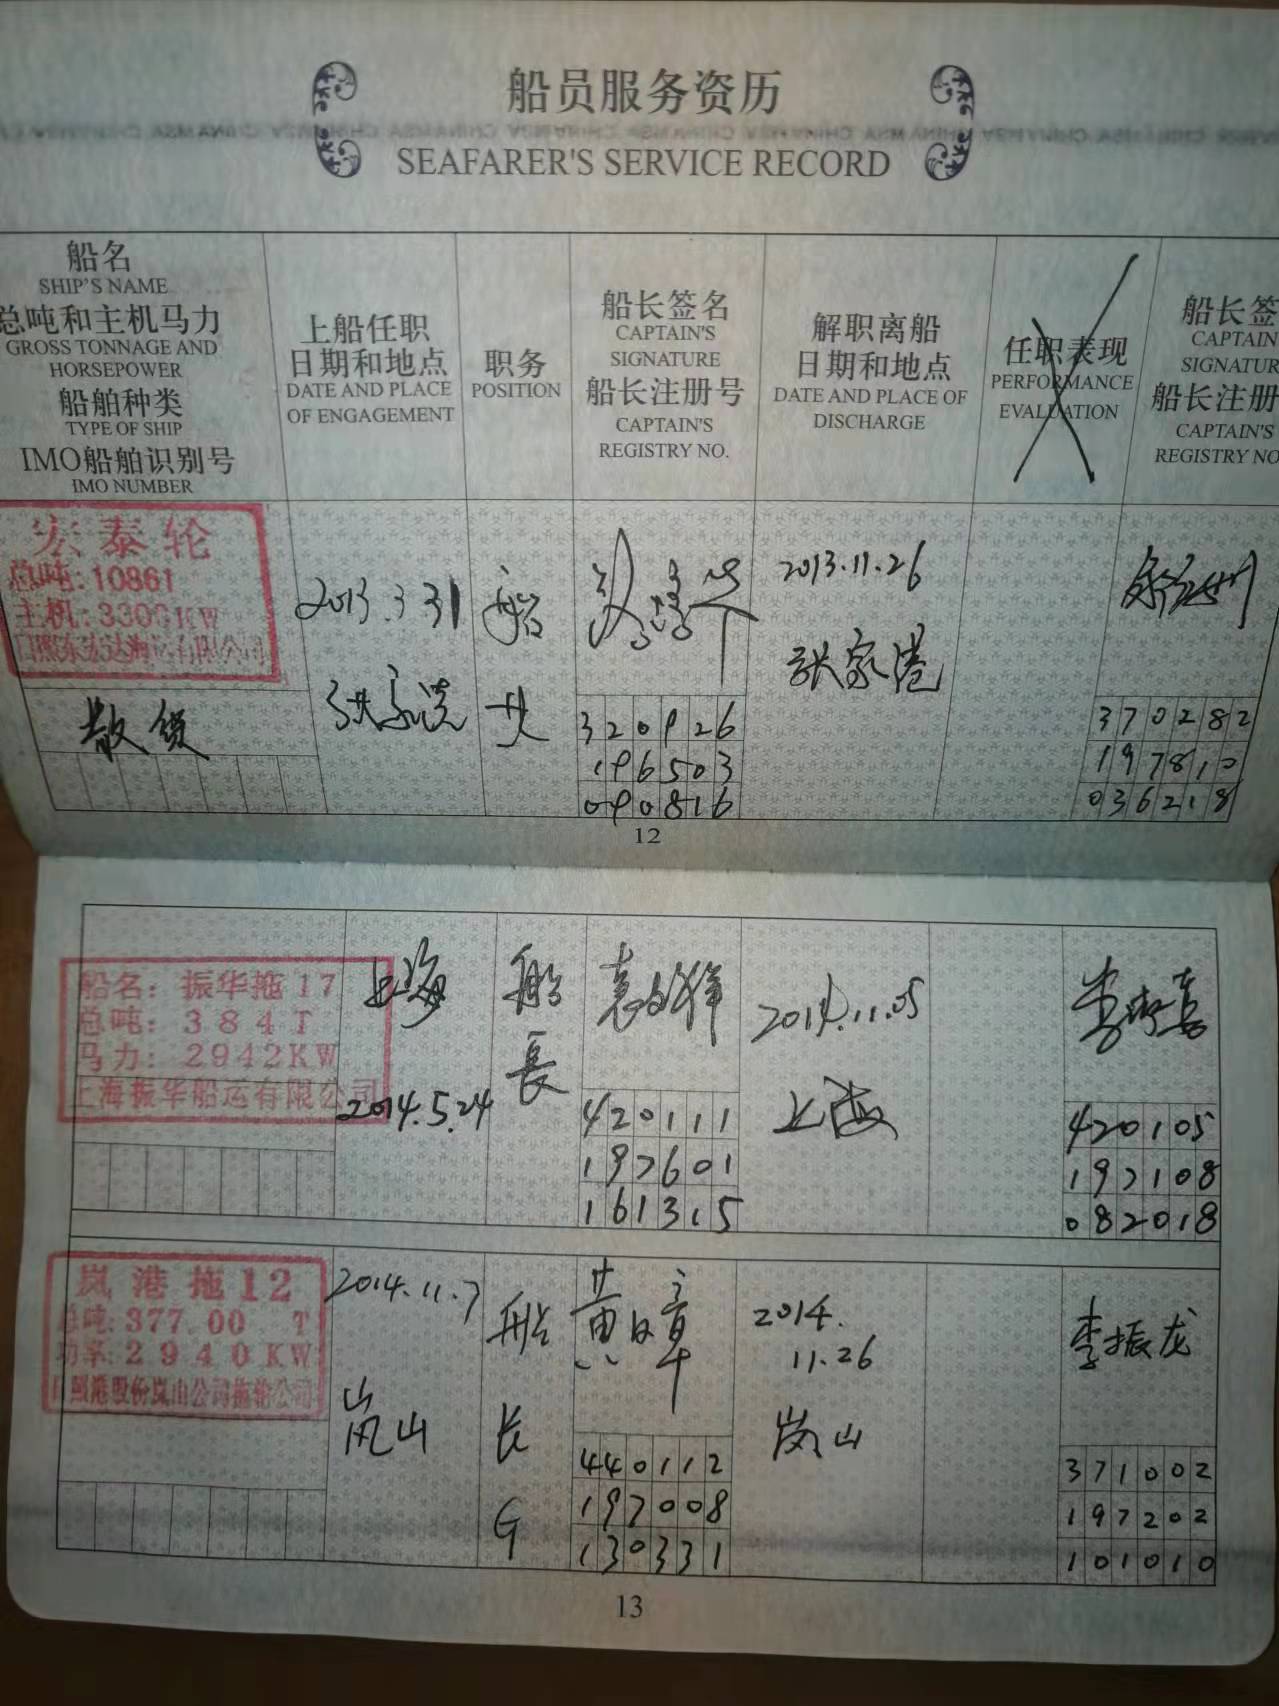 船员服务资历
SEAFARER'S SERVICE RECORD
船名
SHIP'S NAME
总吨和主机马力
GROSS TONNAGE AND
HORSEPOWER
船舶种类
TYPE OF SHIP
IMO船舶识别号
IMO NUMBER
上船任职
日期和地点
DATE AND PLACE
OF ENGAGEMENT
职务
POSITION
船长签名
CAPTAIN'S
SIGNATURE
船长注册号
CAPTAIN'S
REGISTRY NO.
解职离船
日期和地点
DATE AND PLACE OF
DISCHARGE
任职表现
PERFORMANCE
EVALUATION
船长签
CAPTAIN
SIGNATUR
船长注册
CAPTAIN'S
REGISTRY NO
宏泰轮
总吨:10861
主机:3300KW
日照东宏达海运有限公司
散货
2013.3.31
张家港
船
320926
196503
090816
2013.11.26
张家港
370282
197810
036218
12
船名: 振华拖17
总吨: 384T
马力: 2942KW
上海振华船运有限公司
上海
2014.5.24
船
長
420111
197601
161315
2014.11.05
上海
420105
197108
082018
岚港拖12
总吨:377.00 T
功率:2940KW
日照港股份岚山公司拖轮公司
2014.11.7
岚山
船
长
G
440112
197008
130331
2014.
11.26
岚山
李振龙
371002
197202
101010
13